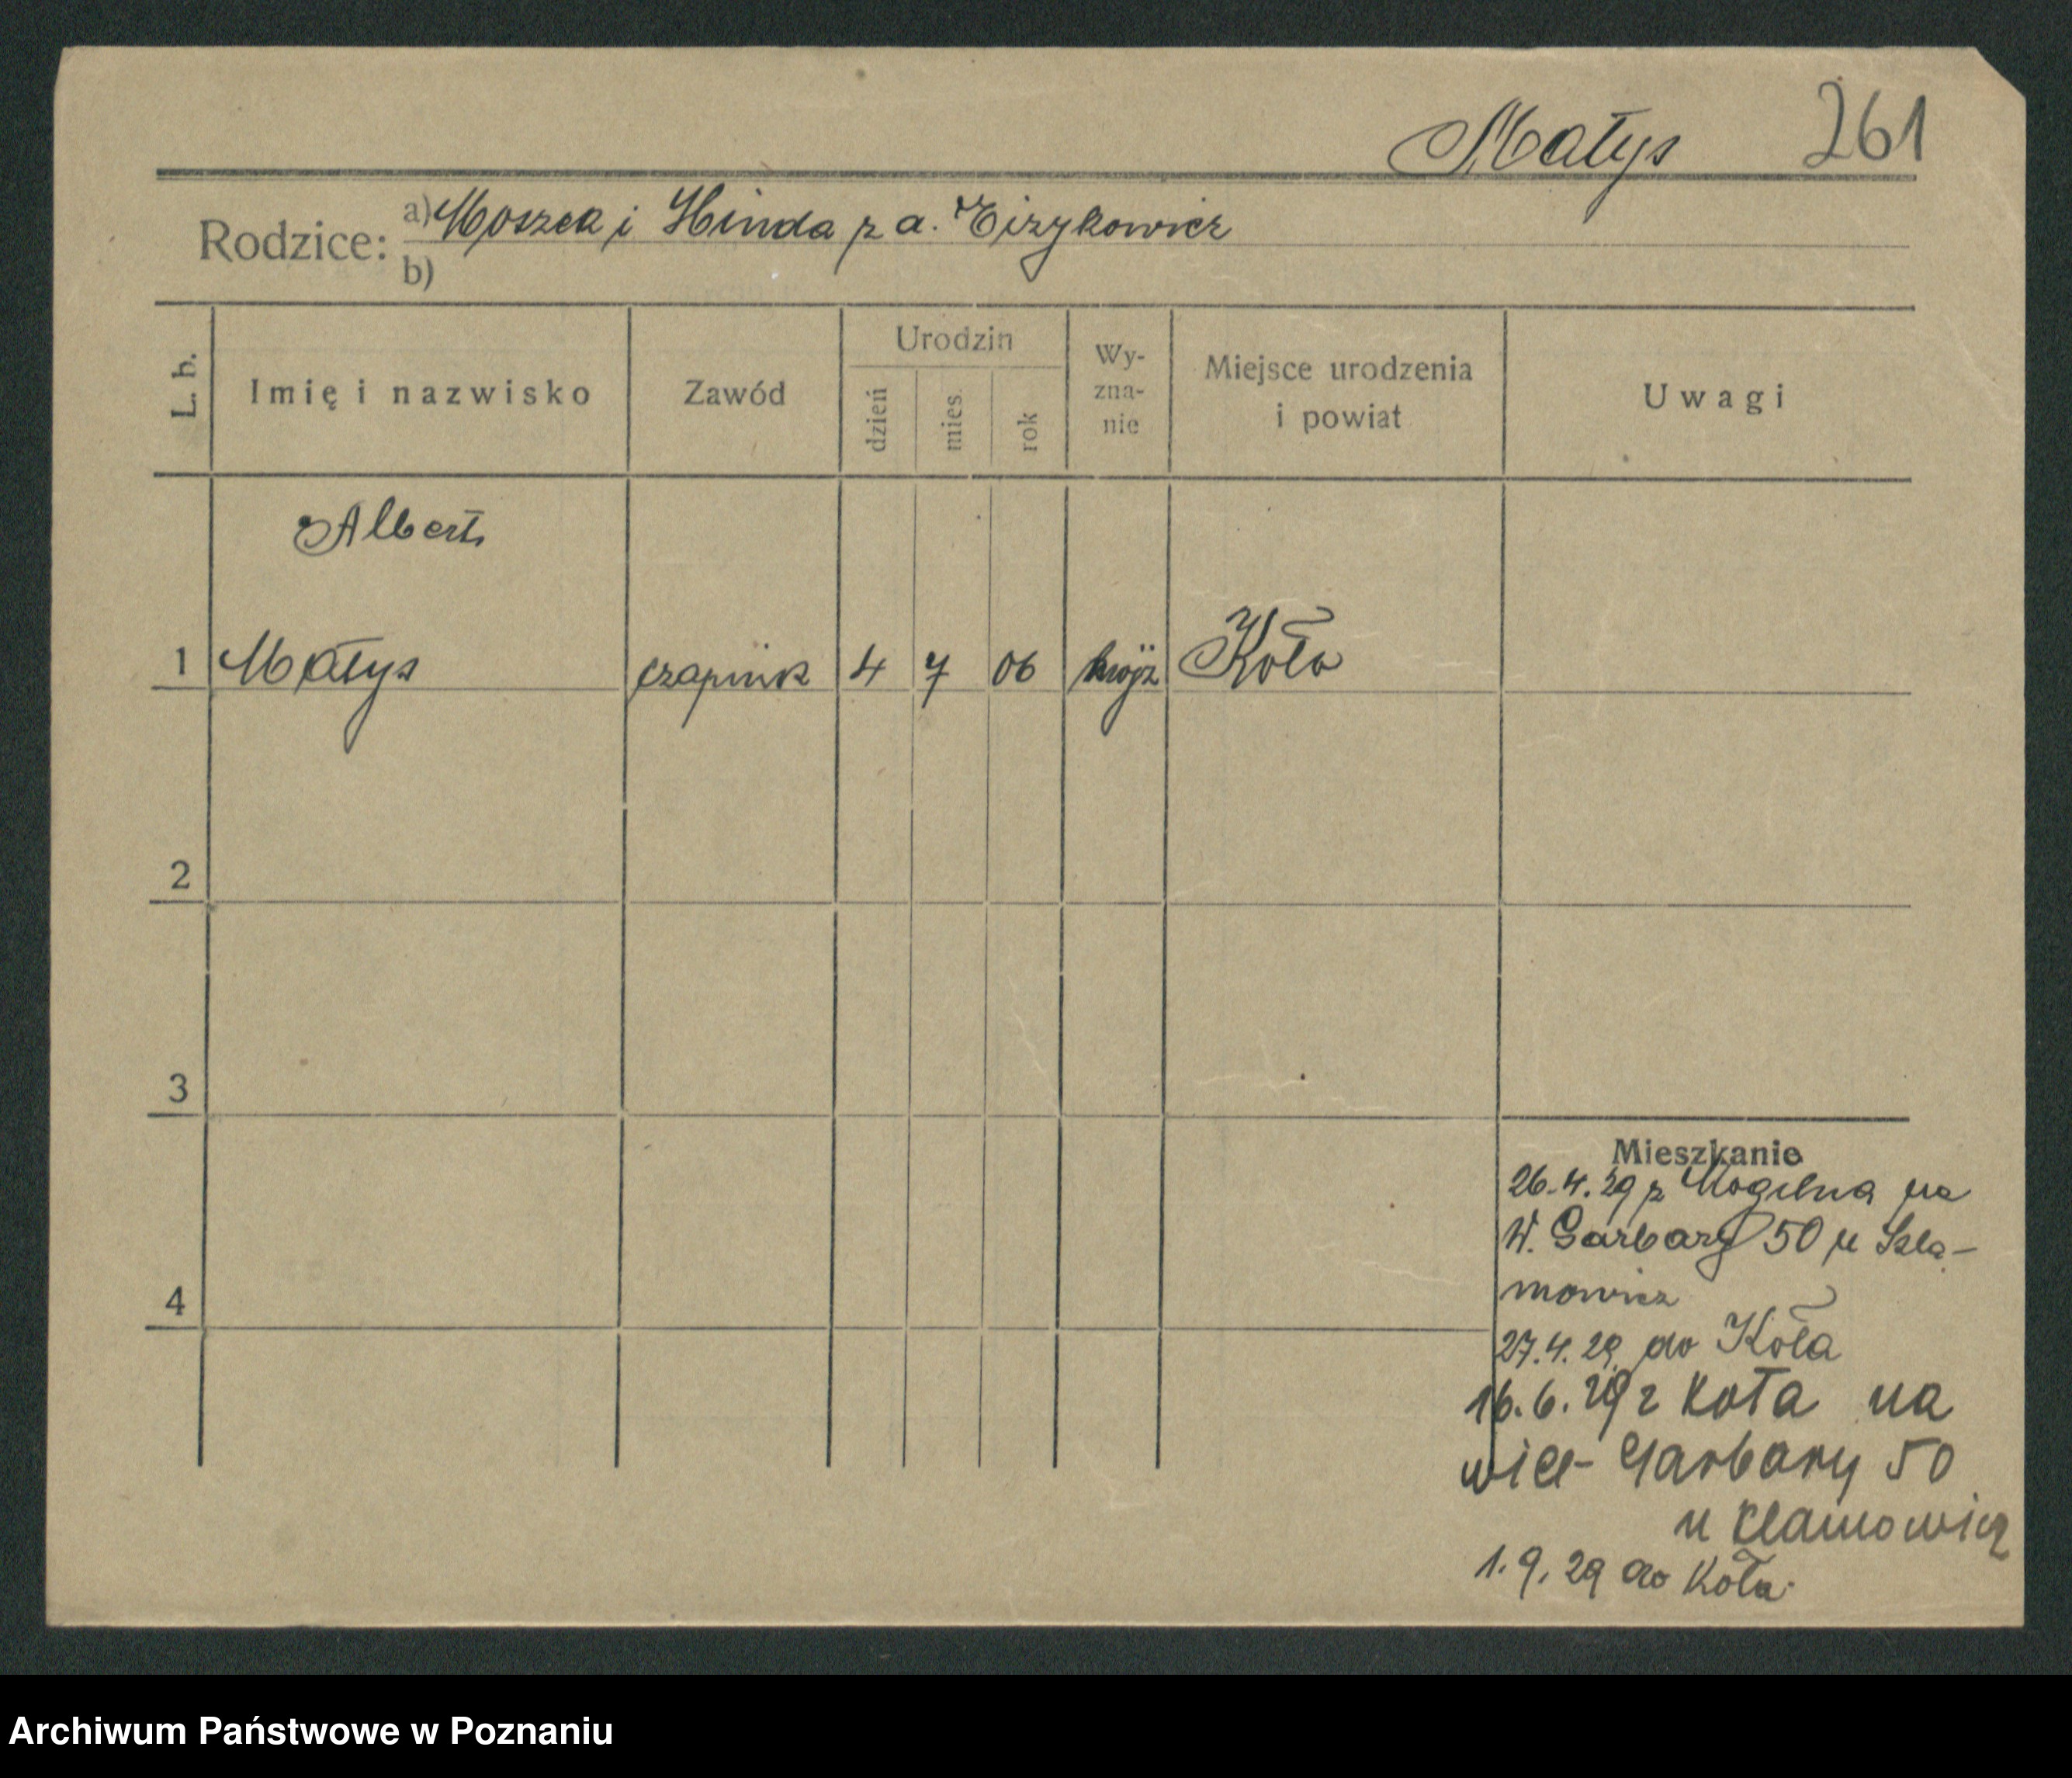 Małys 261
Rodzice: a) Moszek i Hinda z d. Eizykowicz
b)
L. b. Imię i nazwisko Zawód Urodzin dzień mies. rok Wy-zna-nie Miejsce urodzenia i powiat Uwagi
Albert
1 Małys czapnik 4 7 06 mojż Koło
2
3
Mieszkanie
26.4.29 z Mogilna na
W. Garbary 50 u Szla-
mowicz
4
27.4.29 do Koła
16.6.29 z Koła na
Garbary 50
u
1.9.29 do Koła
Archiwum Państwowe w Poznaniu